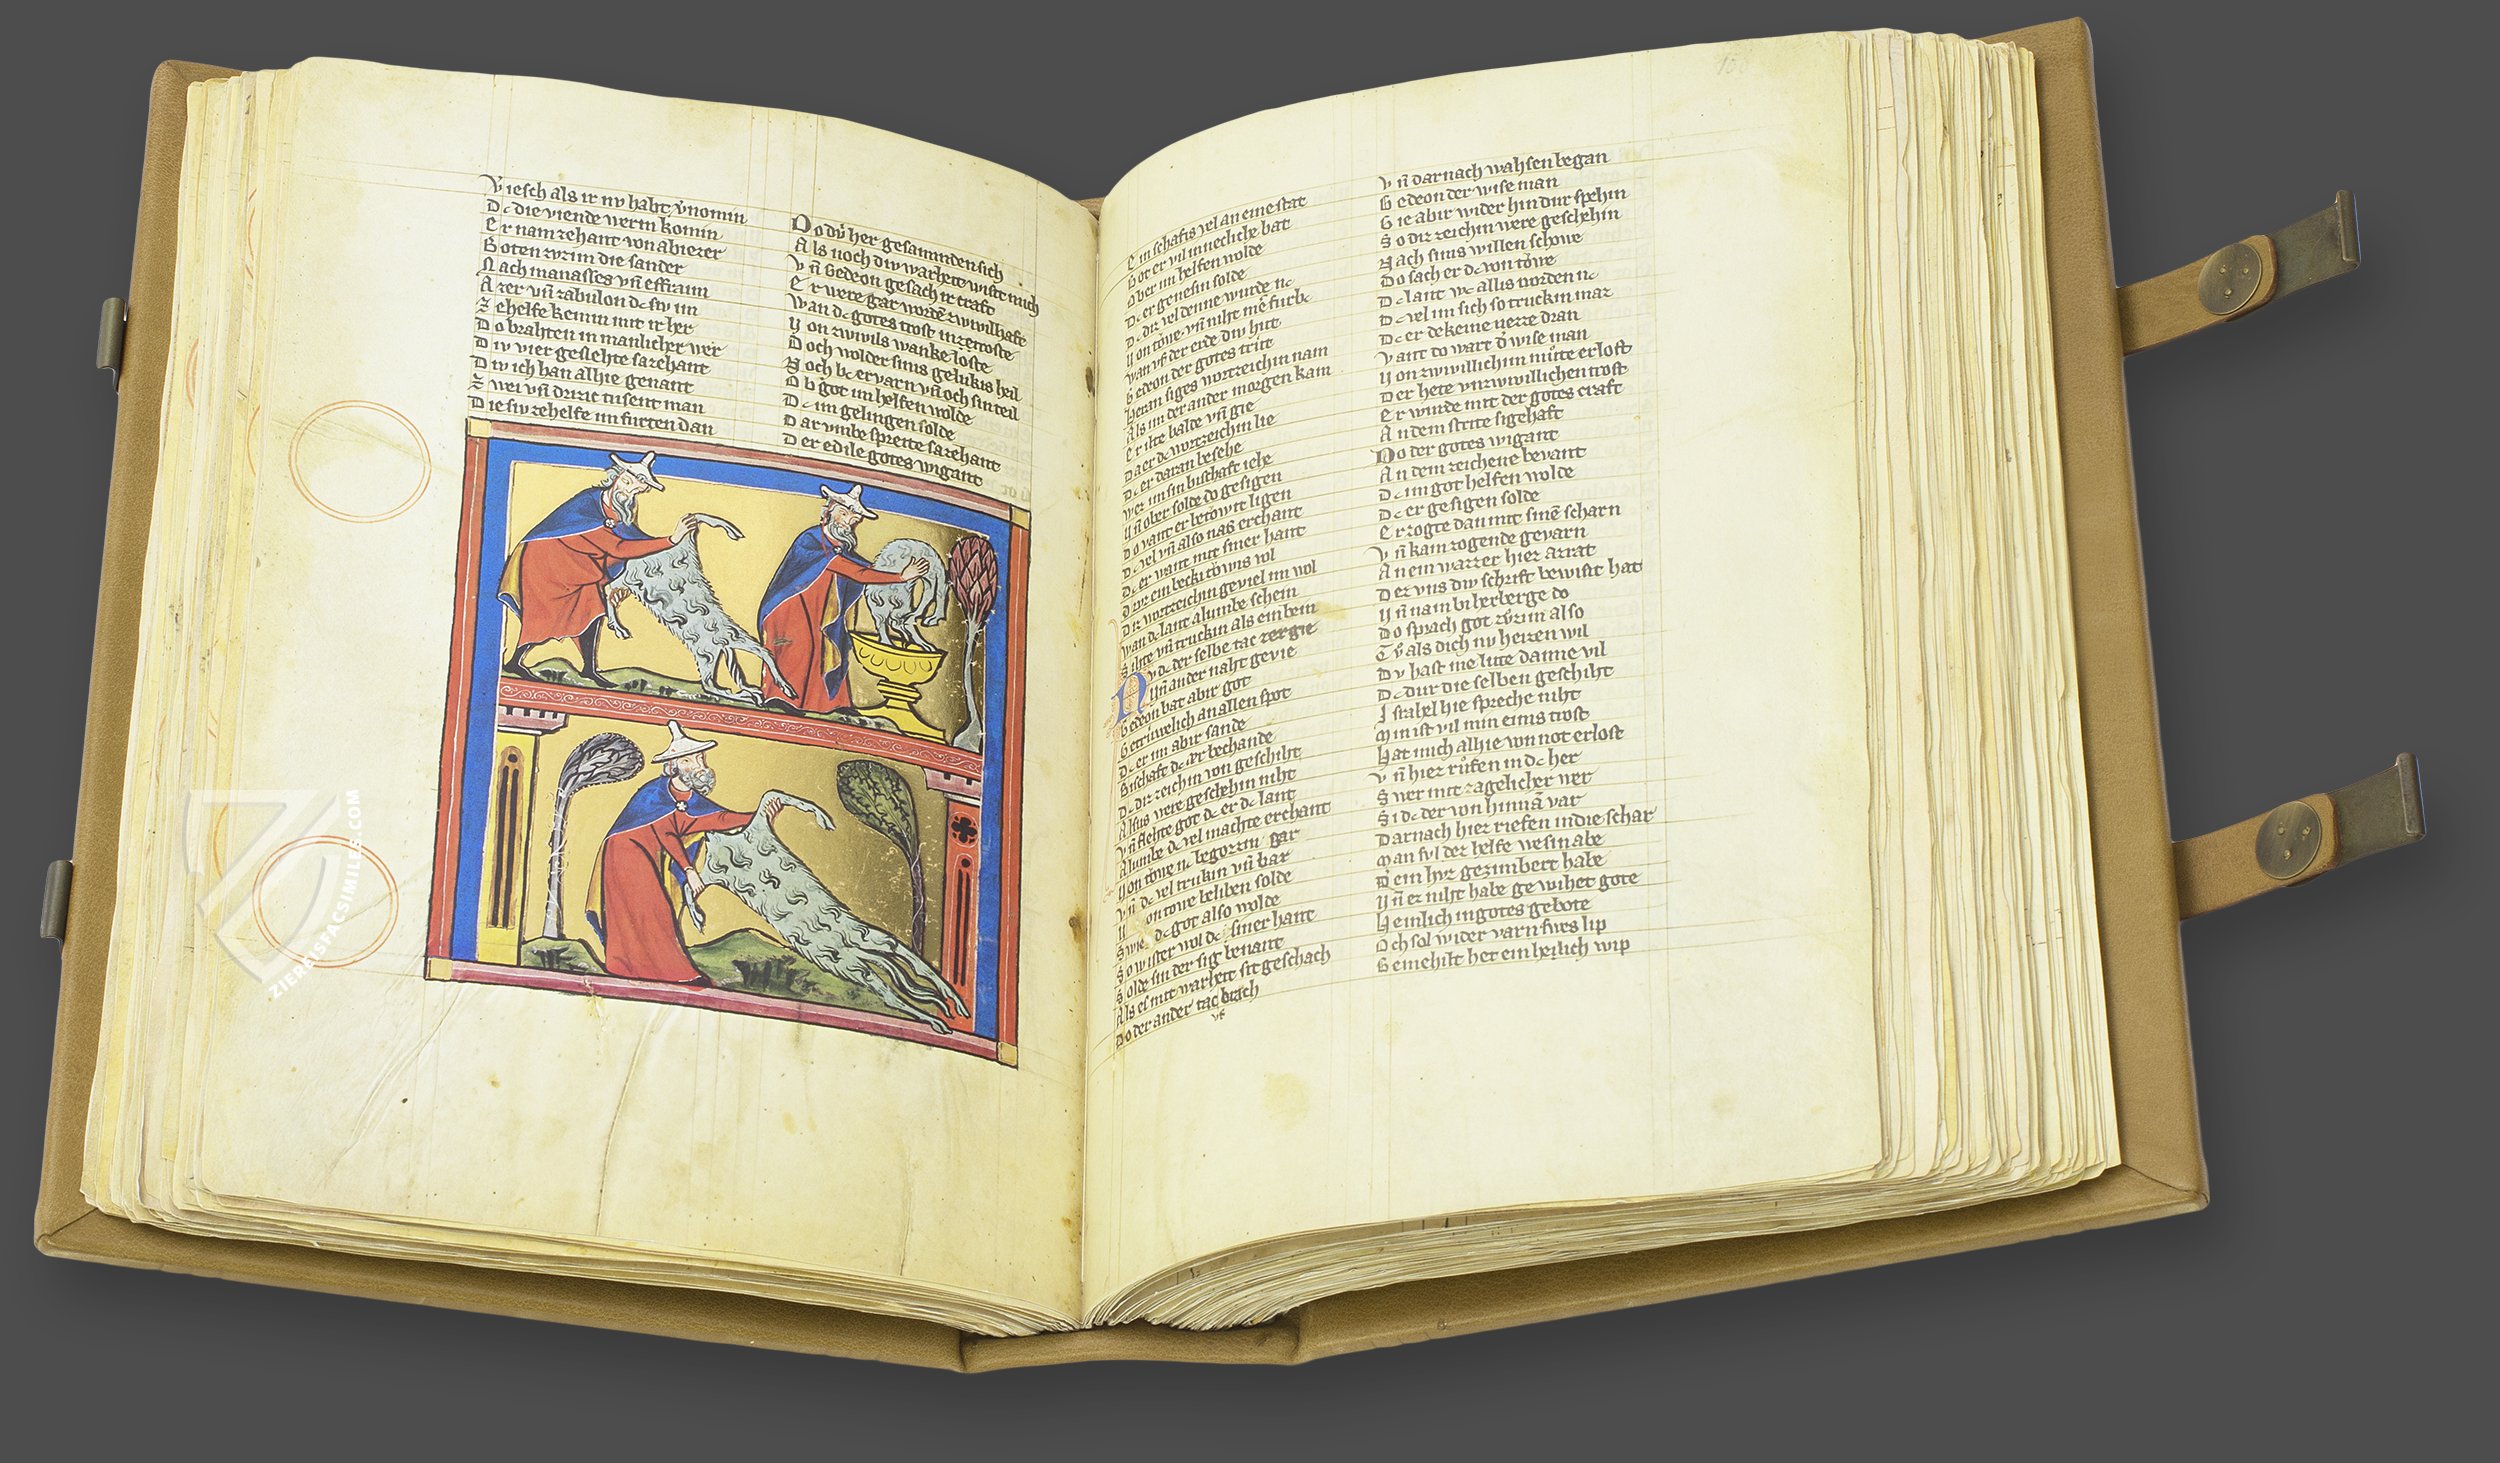 v̓iesch als ir nv habt v̓nomin
Dc die viende werin komin
Er nam zehant von abiezer
Boten vn̄ in die sander
Nach manasses vn̄ effraim
Azer vn̄ zabulon dc siv im
Zehelfe kemin mit ir her
Do brahten in manlicher wer
Div vier geslehte sazehant
Div ich han alhie genant
Zwei vn̄ drizic tusent man
Die siv zehelfe im furten dan
Do dv̓ her gesamnden sich
Als noch div warheit wiset mich
Vn̄ Gedeon gesach ir craft
Er were gar worden zwivilhaft
Wan dc gotes trost in zetroste
Von zwivils wanke loste
Doch wolder sins gelukis heil
Noch bc ervarn vn̄ och sin teil
Ob got im helfen wolde
Dc im gelingen solde
Dar vmbe spreite sazehant
Der edile gotes wigant
Ein schafis vel an eine stat
Got er vil innecliche bat
Ober im helfen wolde
Dc er genesin solde
Dc diz vel denne wurde nc
Von towe vn̄ niht me furbc
Wan vf der erde div hite
Gedeon der gotes trite
Heran siges wortzeichin nam
Als im der ander morgen kam
Er ilte balde vn̄ gie
Da er dc wortzeichin lie
Dc er daran besehe
Wer im sin bischaft iehe
Vn̄ ober solde do gesigen
Do vant er betowit ligen
Dc vel vn̄ also nas erchant
Dc er want mit siner hant
Drvz ein becki towis vol
Diz wortzeichin geviel im wol
Wan dc lant alumbe schein
Sihte vn̄ truckin als ein bein
Nv dc der selbe tac zergie
Vn̄ ander naht gevie
Gedeon bat abir got
Getruwelich an allen spot
Dc er im abir sande
Bischaft dc er bechande
Dc diz zeichin von geschiht
Alsus were geschehin niht
Vn̄ flehte got dc er dc lant
Alumbe dc vel machte erchant
Von towe nc begozzin gar
Vn̄ dc vel trukin vn̄ bar
Von towe beliben solde
Swie dc got also wolde
So wister wol dc siner hant
Solde sin der sig benant
Als es mit warheit sit geschach
Do der ander tac brach
vf
Vn̄ darnach wahsen began
Gedeon der wise man
Gie abir wider hin dur spehin
So diz zeichin were geschehin
Nach sins willen schowe
Do sach er dc von towe
Dc lant wc allis worden nc
Dc vel im sich so truckin maz
Dc er dekeine nezze dran
Vant do wart d̓ wise man
Von zwivillichim mu̓te erlost
Der hete vnzwivillichen trost
Er wurde mit der gotes craft
An dem strite sigehaft
Do der gotes wigant
An dem zeichene bevant
Dc im got helfen wolde
Dc er gesigen solde
Er zogte dan mit sinē scharn
Vn̄ kam zogende gevarn
An ein wazzer hiez arrat
Der vns div schrift bewiset hat
Vn̄ nam bi herberge do
Do sprach got zv̓ im also
Tv̓ als dich nv heizen wil
Dv hast me lute danne vil
Dc dur die selben geschiht
Israhel hie spreche niht
Min ist vil min eins trost
Hat mich alhie von not erlost
Vn̄ hiez ru̓fen in dc her
Swer mit zagelicher wer
Si dc der von hinnā var
Darnach hiez riefen in die schar
Man svl der helfe wesin abe
D̓ ein hvz gezimbert habe
Vn̄ er niht habe gewihet gote
Heinlich in gotes gebote
Och sol wider varn sws lip
Gemehilt het ein heilich wip
ZIEREISFACSIMILES.COM